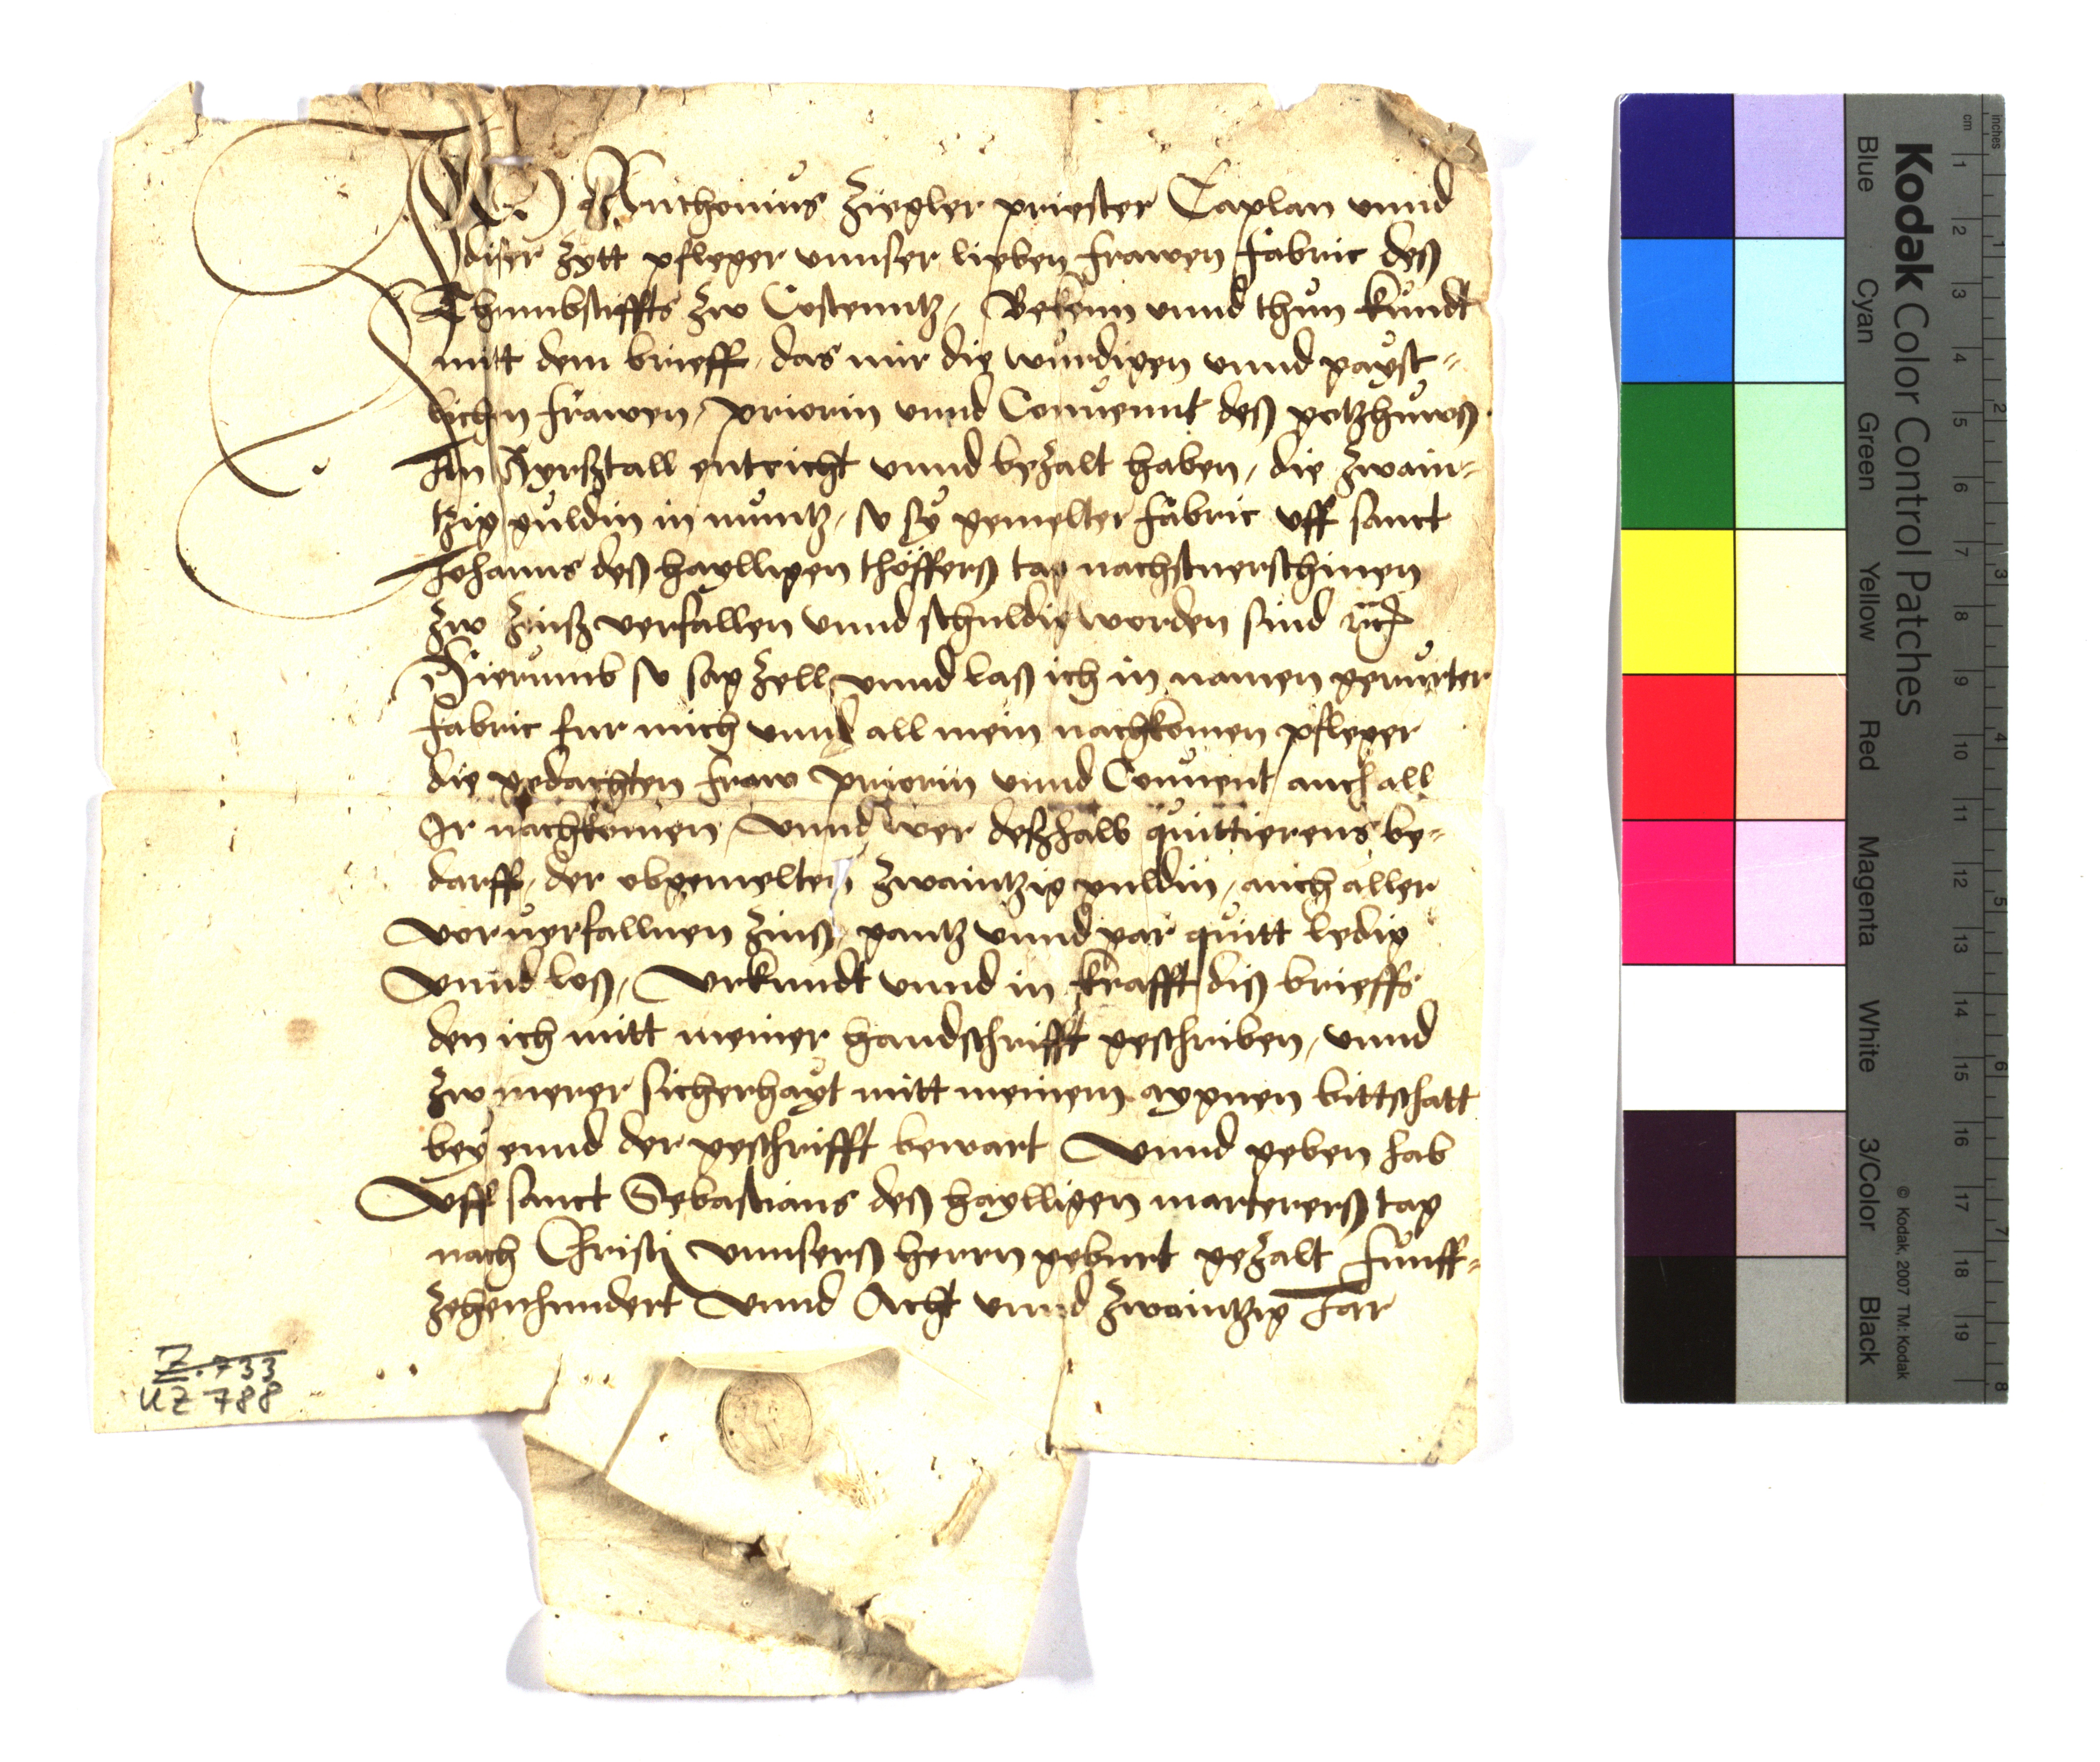 Ich Anthonius Ziegler priester Caplan unnd
diser zytt pfleger unnser lieben frawen fabric deß
Thumbstiffts zw Costenntz, Bekenn unnd thun kundt
mitt dem brieff, das mir die wurdigen unnd gayst-
lichen frawen, priorin unnd Convennt deß gotzhuwß
Im entricht unnd bezalt haben, die zwain-
tzig guldin in muntz, so sy gemelter fabric uff sanct
Johanns deß haylligen thöfferß tag nachstverschinen
zw zinß verfallen unnd schuldig worden sind
Hierumb so sag zell unnd laß ich in namen gerurter
fabric fur mich unnd all mein nachkomen pfleger
die gedachten fraw priorin unnd Convent auch all
Ir nachkomen, unnd wer deßhalb quittierens be-
darff, der obgemelten zwaintzig guldin, auch aller
vorverfallnen zinß, gantz unnd gar quitt ledig
unnd loß, urkundt unnd in krafft diß brieffs
den ich mitt meiner handschrifft geschriben, unnd
zw merer sicherhayt mitt meinem aygnen bittschatt
bey ennd der geschrifft bewart unnd geben hab
Uff sanct Sebastians deß haylligen martererß tag
nach Christi unnserß herrn geburt gezalt funff-
zehenhundert unnd Acht unnd zwaintzig Jar
Z. 733
UZ 788
Kodak Color Control Patches
Blue Cyan Green Yellow Red Magenta White 3/Color Black
© Kodak, 2007 TM: Kodak
inches 1 2 3 4 5 6 7 8
cm 1 2 3 4 5 6 7 8 9 10 11 12 13 14 15 16 17 18 19